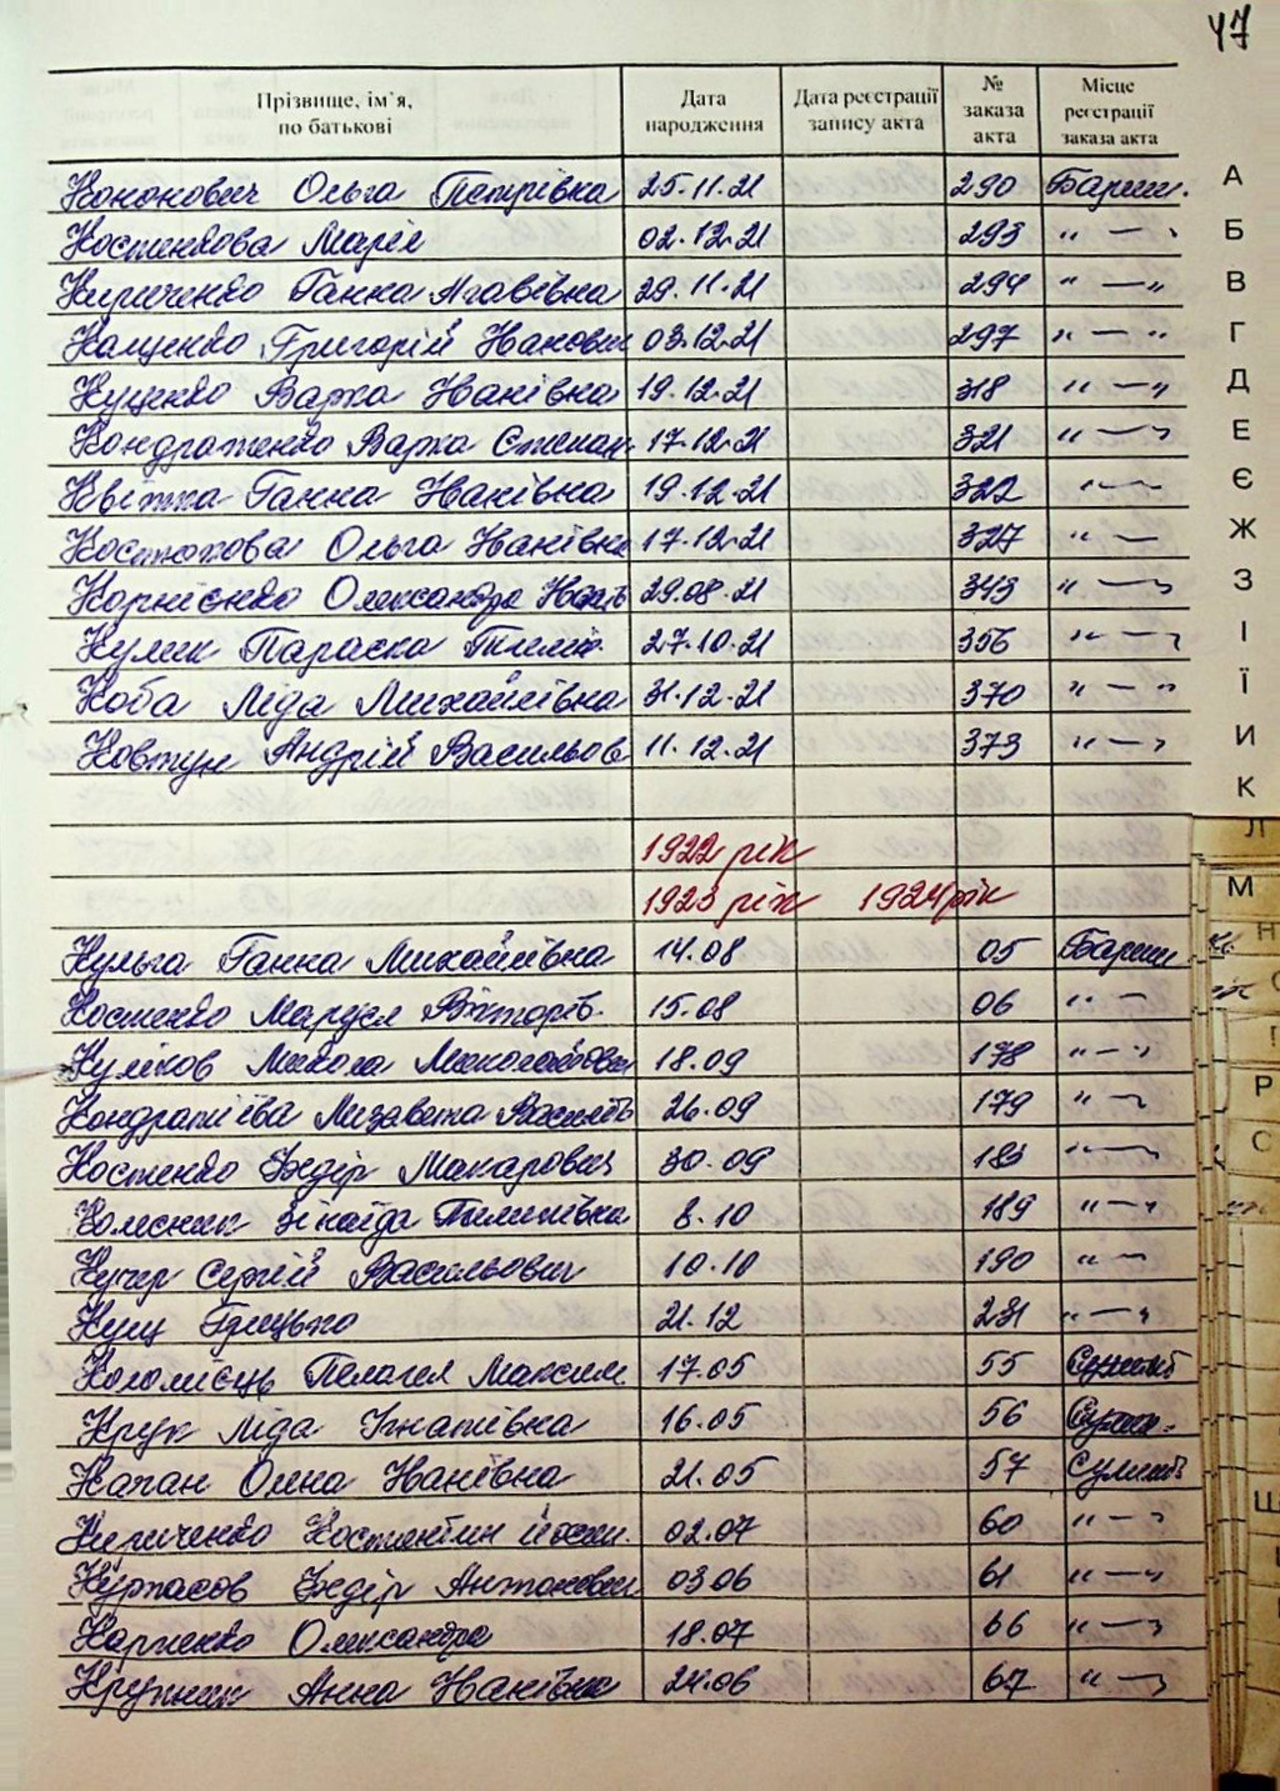 47
Прізвище, ім`я, по батькові Дата народження Дата реєстрації запису акта № заказа акта Місце реєстрації заказа акта
Кононович Ольга Петрівка 25.11.21 290 Бариш. А
Костенкова Марія 02.12.21 293 " — " Б
Кириченко Ганна 29.11.21 294 " — " В
Кащенко Григорій Іванович 03.12.21 297 " — " Г
Куценко Варка Іванівна 19.12.21 318 " — " Д
Кондратенко Варка Степан 17.12.21 321 " — " Е
Квітка Ганна Іванівна 19.12.21 322 " — " Є
Костюкова Ольга Іванівна 17.12.21 327 " — " Ж
Корнієнко Олександра Іванів 29.08.21 343 " — " З
Кулик Параска 27.10.21 356 " — " І
Коба Ліда Михайлівна 31.12.21 370 " — " Ї
Ковтун Андрій Васильов 11.12.21 373 " — " И
К
Л
1922 рік
1923 рік 1924 рік М
Кульга Ганна Михайлівна 14.08 05 Бариш Н
Костенко Маруся Вікторів. 15.08 06 " —
Куліков Микола Миколайович 18.09 178 " — "
Кондратієва Лизавета Василів 26.09 179 " — " Р
Костенко Федір Макарович 30.09 183 " — " С
Колесник Зінаїда Пилипівна 8.10 189 " — "
Кучер Сергій Васильович 10.10 190 " —
Кущ Грицько 21.12 231 " — "
Коломієць Пелагея Максим 17.05 55
Крук Ліда Ігнатівна 16.05 56
Качан Олна Іванівна 21.05 57 Сулимів
Кириченко Костянтин 02.07 60 " — "
Курпасов Федір Антонович 03 06 61 " — "
Карпенко Олександра 18.07 66 " — "
Крупник Анна Іванівна 24.06 67 " — "